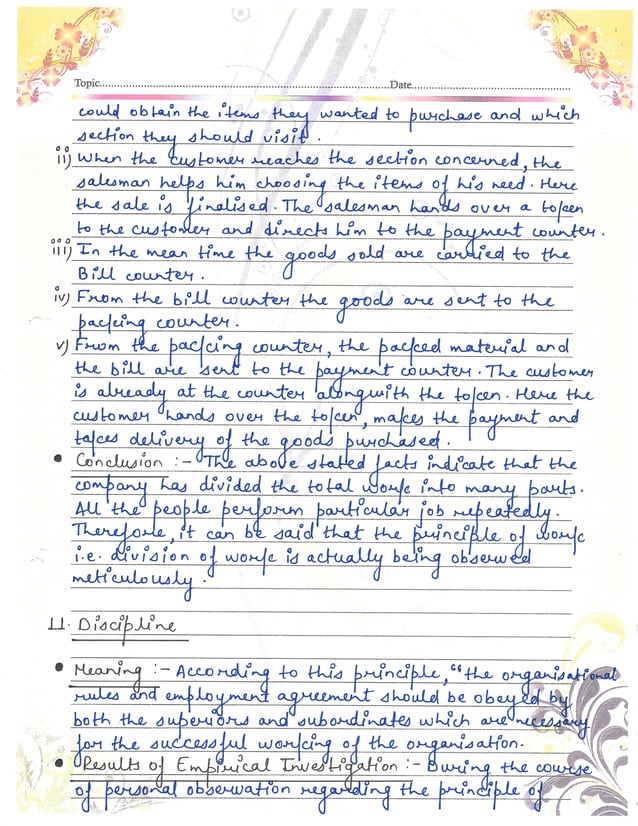 Topic.....................Date.....................
could obtain the items they wanted to purchase and which
section they should visit.
ii) When the customer reaches the section concerned, the
salesman helps him choosing the items of his need. Here
the sale is finalised. The salesman hands over a token
to the customer and directs him to the payment counter.
iii) In the mean time the goods sold are carried to the
Bill counter.
iv) From the bill counter the goods are sent to the
packing counter.
v) From the packing counter, the packed material and
the bill are sent to the payment counter. The customer
is already at the counter alongwith the token. Here the
customer hands over the token, makes the payment and
takes delivery of the goods purchased.
• Conclusion :- The above stated facts indicate that the
company has divided the total work into many parts.
All the people perform particular job repeatedly.
Therefore, it can be said that the principle of work
i.e. division of work is actually being observed
meticulously.
II. Discipline
• Meaning :- According to this principle, "the organisational
rules and employment agreement should be obeyed by
both the superiors and subordinates which are necessary
for the successful working of the organisation.
• Results of Empirical Investigation :- During the course
of personal observation regarding the principle of